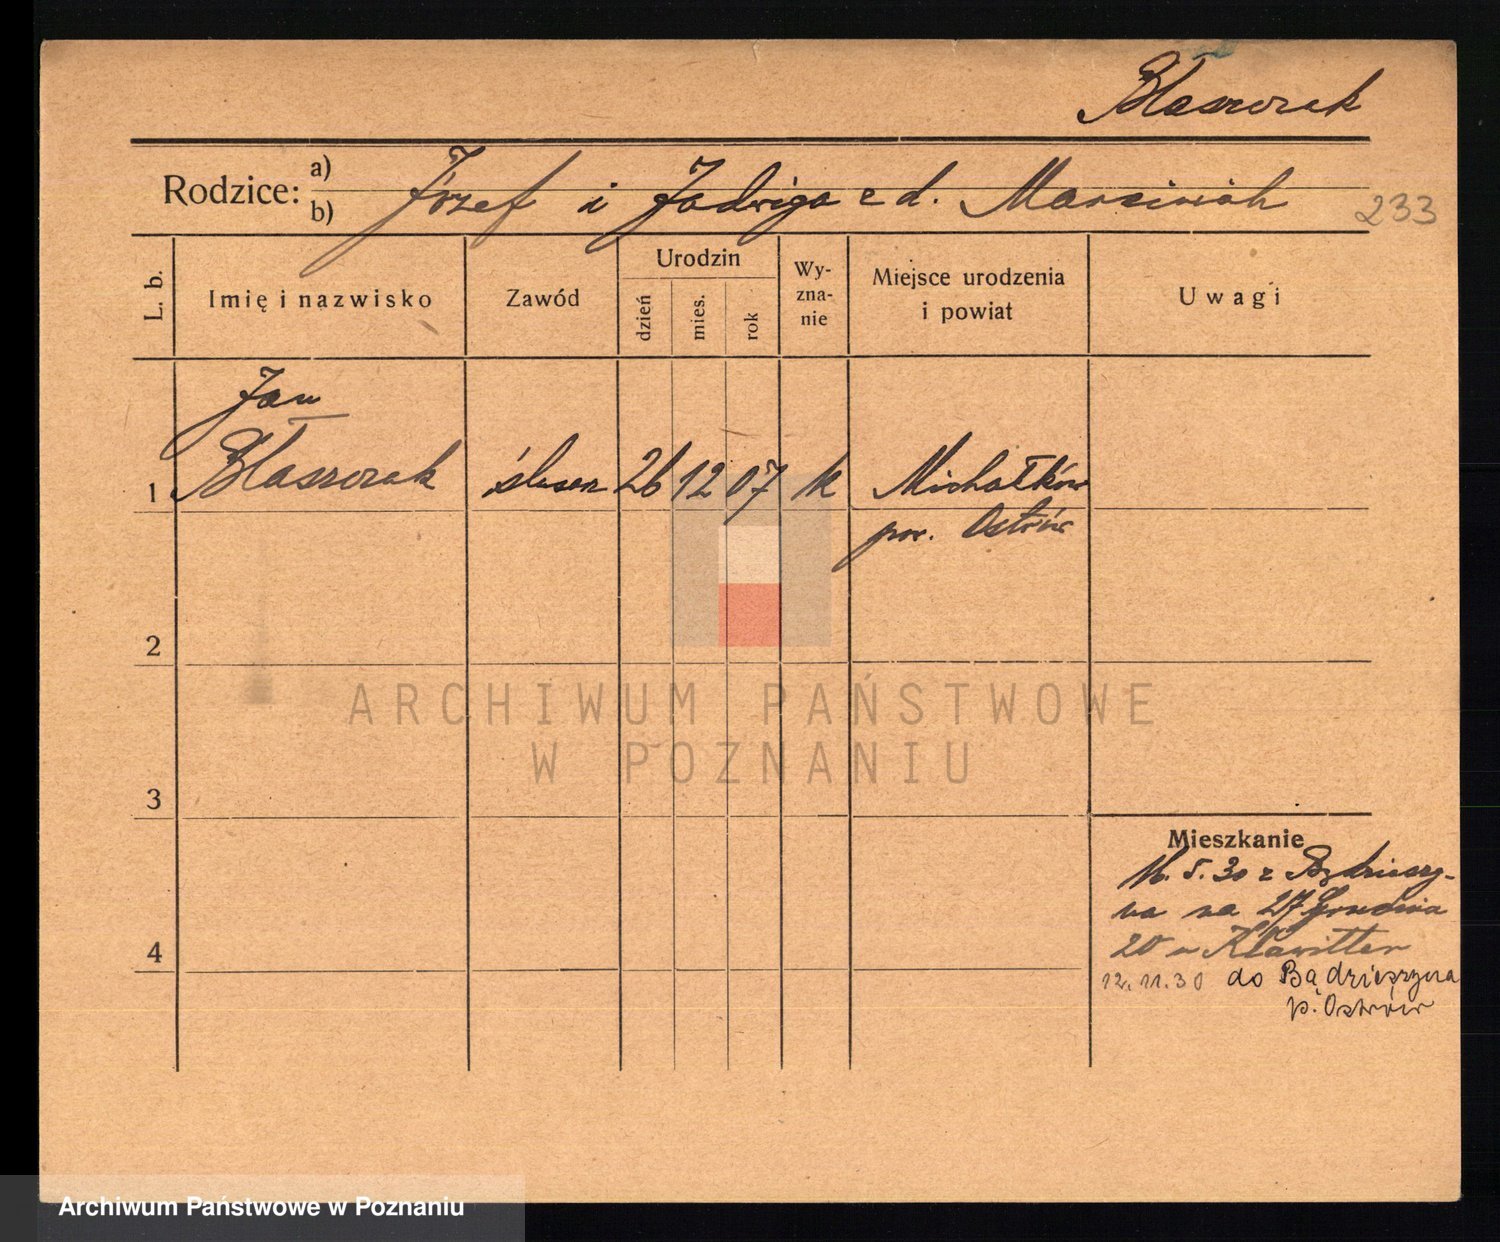 Błaszczak
Rodzice: a) b) Józef i Jadwiga z d. Marciniak
233
L. b. Imię i nazwisko Zawód Urodzin dzień mies. rok Wy-zna-nie Miejsce urodzenia i powiat Uwagi
Jan
1 Błaszczak ślusarz 26 12 07 k Michałków
pow. Ostrów
2
ARCHIWUM PAŃSTWOWE
W POZNANIU
3
Mieszkanie
16.5.30 z Bądzieszy-
na na 27 Grudnia
4 20 u Klawitter
12.11.30 do Bądzieszyna
p. Ostrów
Archiwum Państwowe w Poznaniu